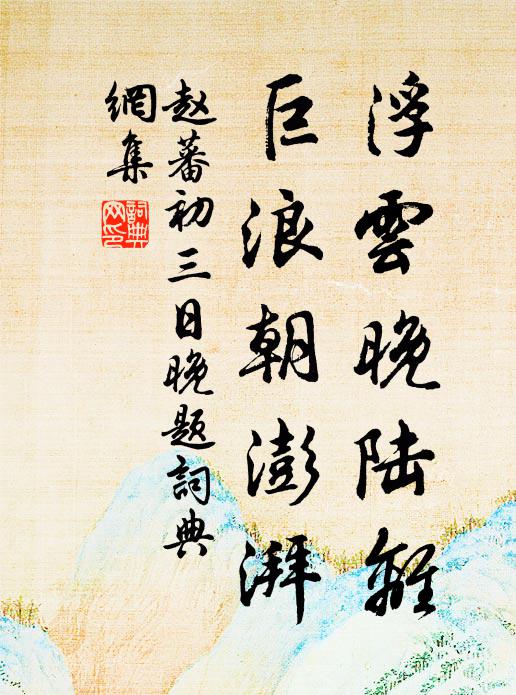 浮雲晚陆離
巨浪朝澎湃
赵蕃初三日晚题詞典
網集
詞典
网印